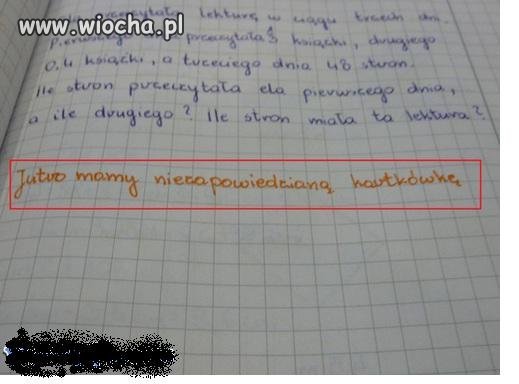 www.wiocha.pl
przeczytała lekturę w ciągu trzech dni.
pierwszego przeczytała książki, drugiego
0,4 książki, a trzeciego dnia 48 stron.
Ile stron przeczytała ela pierwszego dnia,
a ile drugiego? Ile stron miała ta lektura?
Jutro mamy niezapowiedzianą kartkówkę